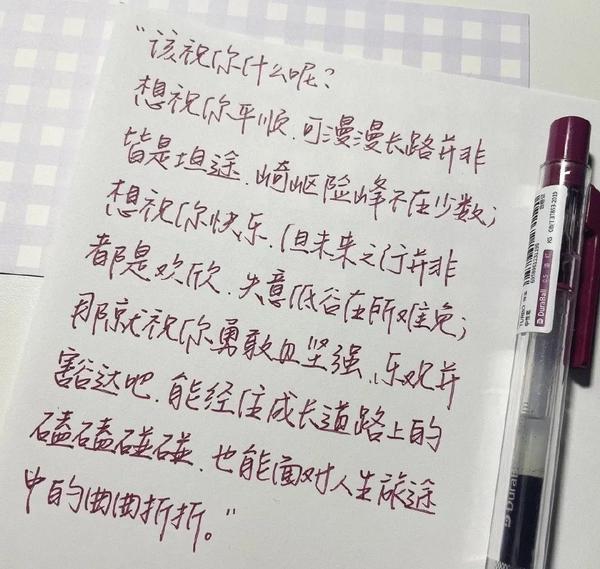 “该祝你什么呢？
想祝你平顺，可漫漫长路并非
皆是坦途，崎岖险峰不在少数；
想祝你快乐，但未来之行并非
都是欢欣，失意低谷在所难免；
那就祝你勇敢且坚强、乐观并
豁达吧，能经住成长道路上的
磕磕碰碰，也能面对人生旅途
中的曲曲折折。”
DuraBall